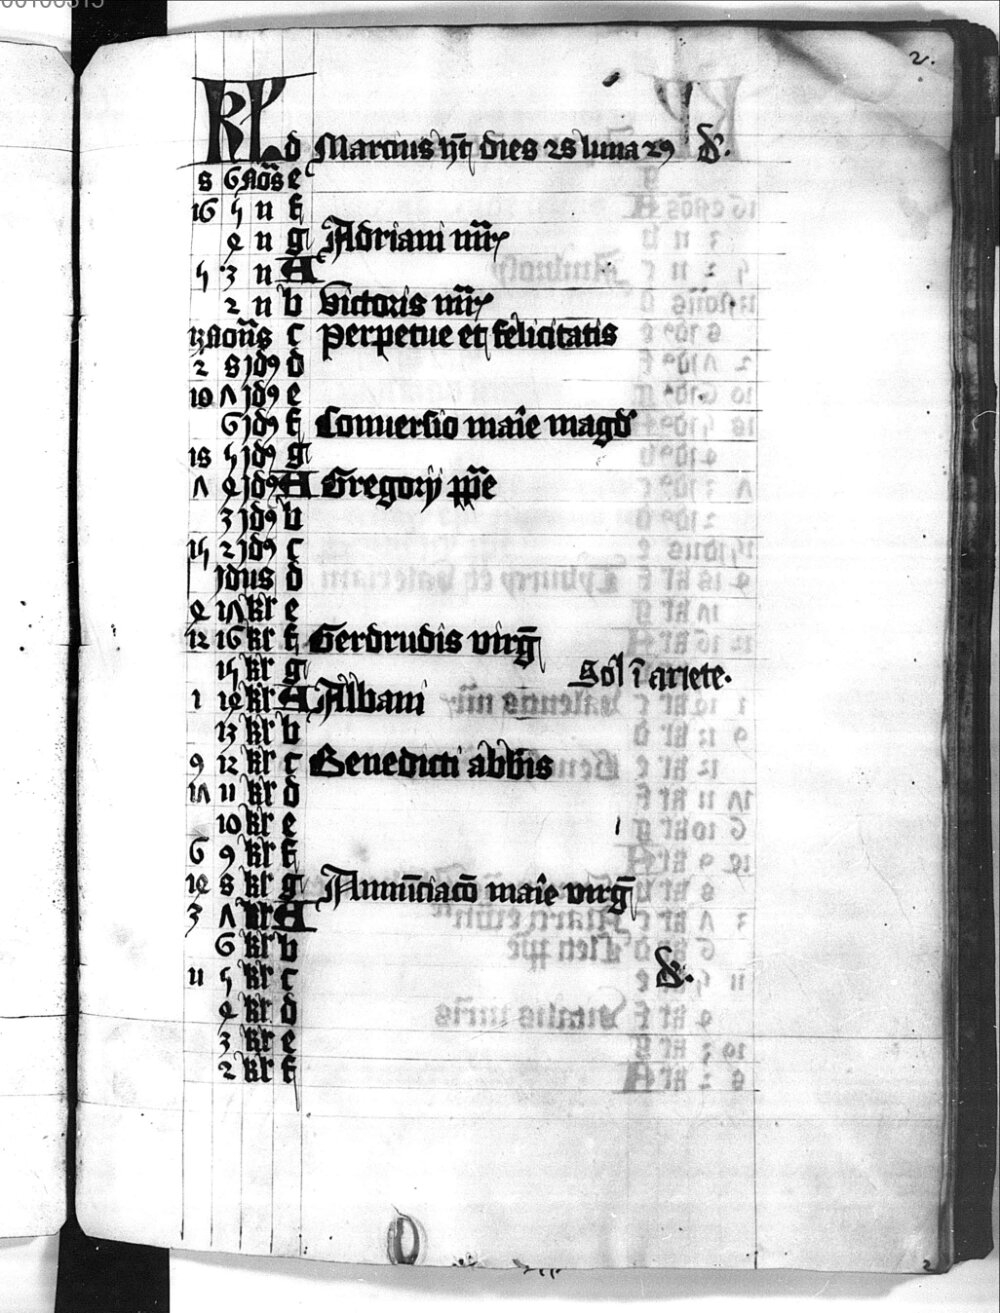 2.
KL d Marcius hꝫ dies 28 luna 29 &.
8 6 noās e
16 5 n f
4 n g Adriani mr̄
5 3 n A
2 n b Victoris mr̄
13 nonās c Perpetue et felicitatis
2 8 jdꝰ d
10 7 jdꝰ e
6 jdꝰ f Conuersio maīe magd
18 5 jdꝰ g
7 4 jdꝰ A Gregorij ppe
3 jdꝰ b
15 2 jdꝰ c
jdus d
4 17 kl e
12 16 kl f Gerdrudis virḡ
15 kl g Sol ī ariete.
1 14 kl A Albani
13 kl b
9 12 kl c Benedicti abbis
17 11 kl d
10 kl e
6 9 kl f
14 8 kl g Annūciacō maīe virḡ
3 7 kl A
6 kl b
11 5 kl c &.
4 kl d
3 kl e
2 kl f